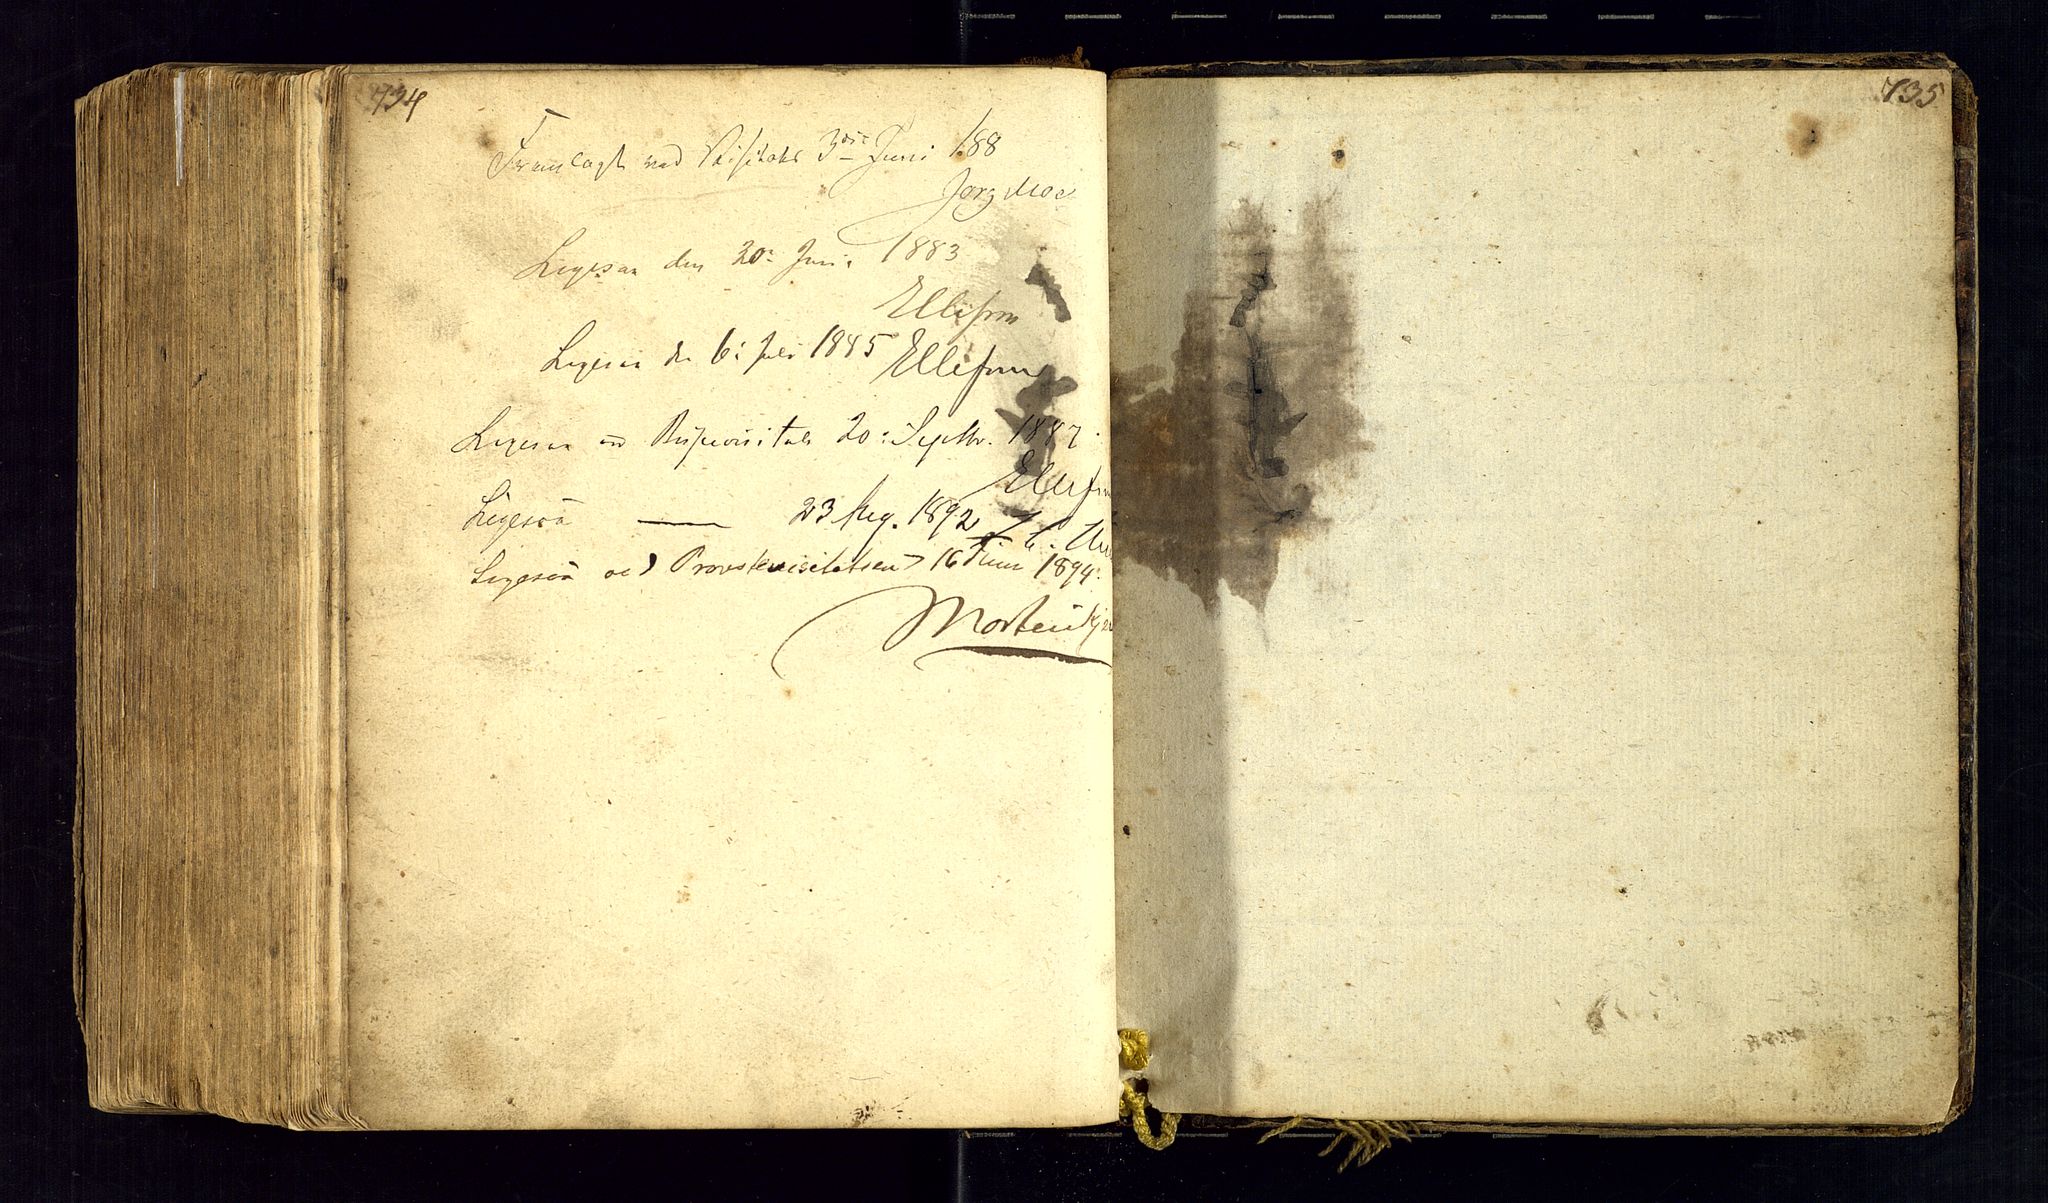 734
Fremlagt ved Visitats 3die Juni 188
Jørg Moe
Ligesaa den 20de Juni 1883
Ellefsen
Ligesaa den 6te Juli 1885 Ellefsen
Ligesaa ved Bispevisitats 20de Septbr. 1887.
Ellefsen
Ligesaa — 23 Aug. 1892
Ligesaa ved Provstevisitatsen 16 Juni 1894.
Morten Kjer
735